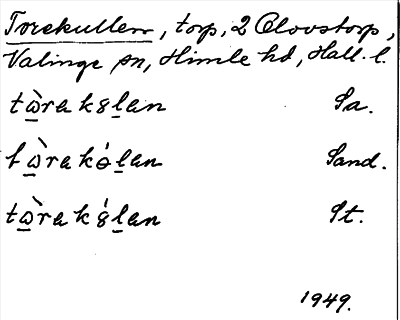 Torekullen, torp, 2 Olovstorp,
Valinge sn, Himle hd, Hall. l.
tὼ̠rak8l̠an Sa.
tὼ̠rakól̠an Sand.
tὼ̠rak8́l̠an St.
1949.